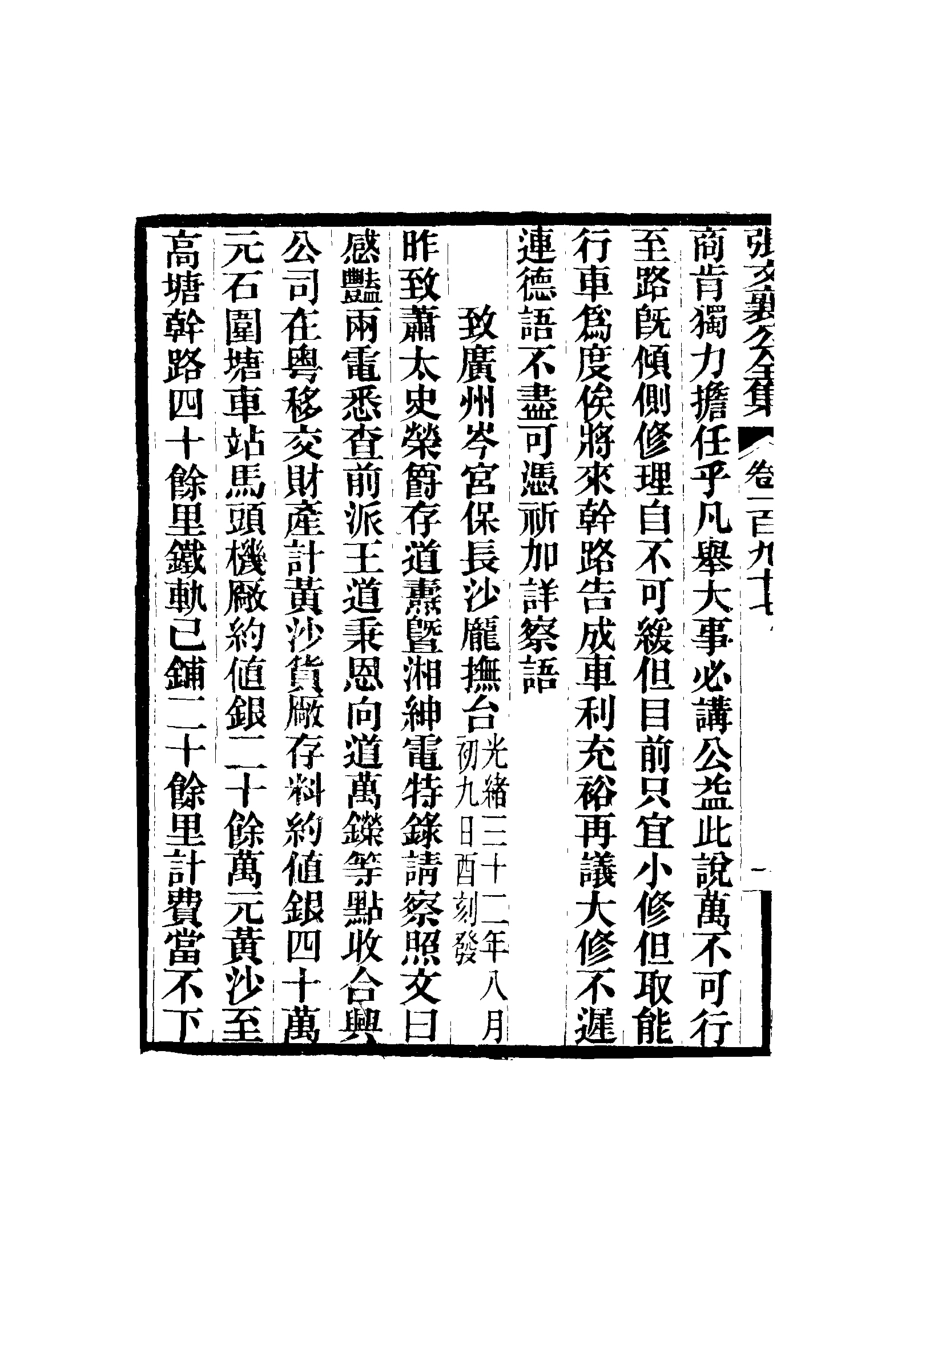 張文襄公全集 卷一百九十七 二
商肯獨力擔任乎凡舉大事必講公益此說萬不可行
至路旣傾側修理自不可緩但目前只宜小修但取能
行車爲度俟將來幹路告成車利充裕再議大修不遲
連德語不盡可憑祈加詳察語
致廣州岑宮保長沙龐撫台光緒三十二年八月
初九日酉刻發
昨致蕭太史榮爵存道燾曁湘紳電特錄請察照文曰
感豔兩電悉查前派王道秉恩向道萬鑅等點收合興
公司在粵移交財產計黃沙貨厰存料約値銀四十萬
元石圍塘車站馬頭機厰約値銀二十餘萬元黃沙至
高塘幹路四十餘里鐵軌已鋪二十餘里計費當不下